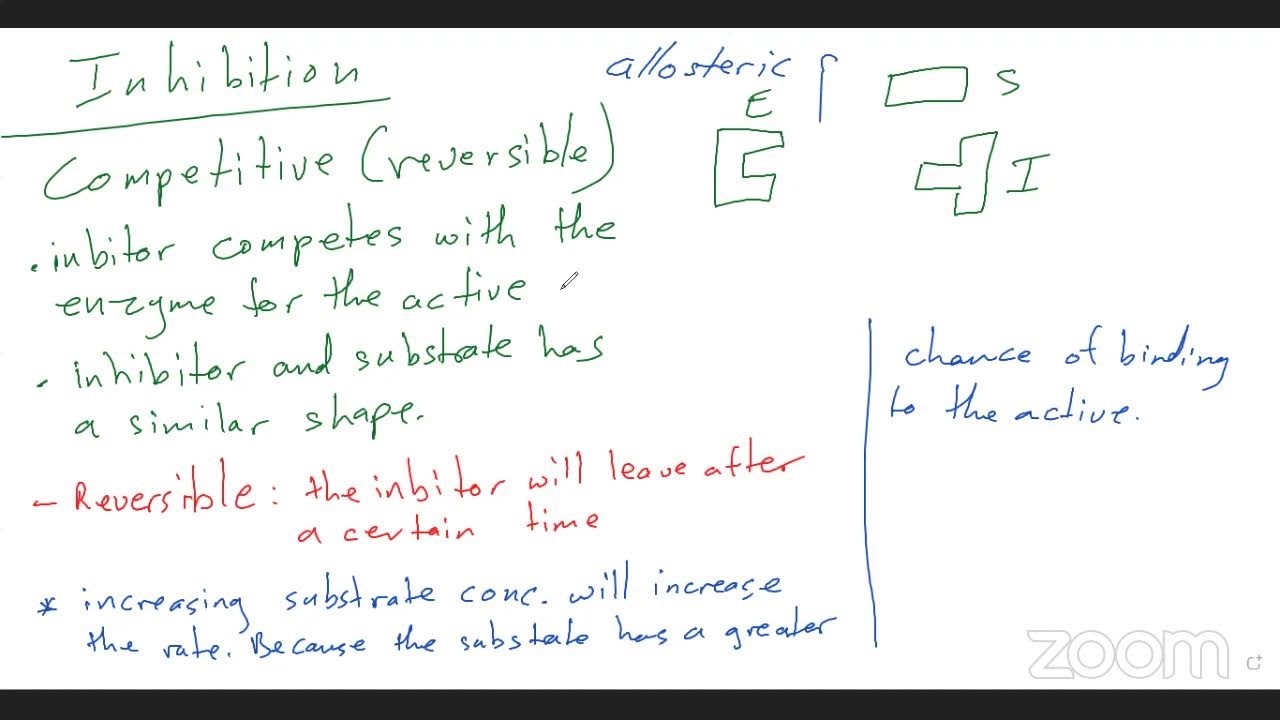 Inhibition
allosteric
E
S
I
Competitive (reversible)
. inbitor competes with the
enzyme for the active
- inhibitor and substrate has
a similar shape.
- Reversible: the inbitor will leave after
a certain time
* increasing substrate conc. will increase
the rate. Because the substate has a greater
chance of binding
to the active.
zoom